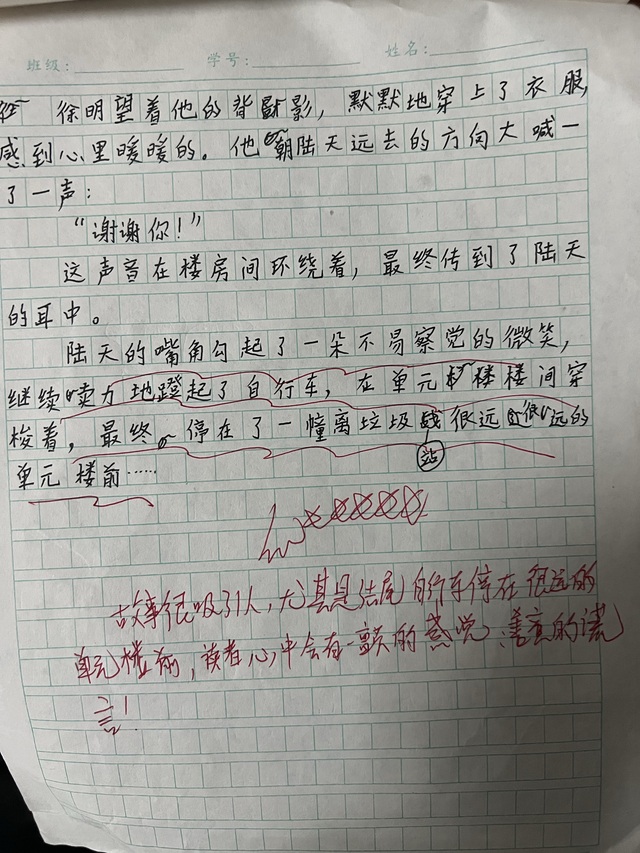 班级： 学号： 姓名：
徐明望着他的背影，默默地穿上了衣服，
感到心里暖暖的。他朝陆天远去的方向大喊一
了一声：
“谢谢你！”
这声音在楼房间环绕着，最终传到了陆天
的耳中。
陆天的嘴角勾起了一朵不易察觉的微笑，
继续卖力地蹬起了自行车，在单元楼楼间穿
梭着，最终停在了一幢离垃圾站很远很远的
单元楼前……
故事很吸引人，尤其是结尾自行车停在很远的
单元楼前，读者心中会有一颤的感觉，善意的谎
言！